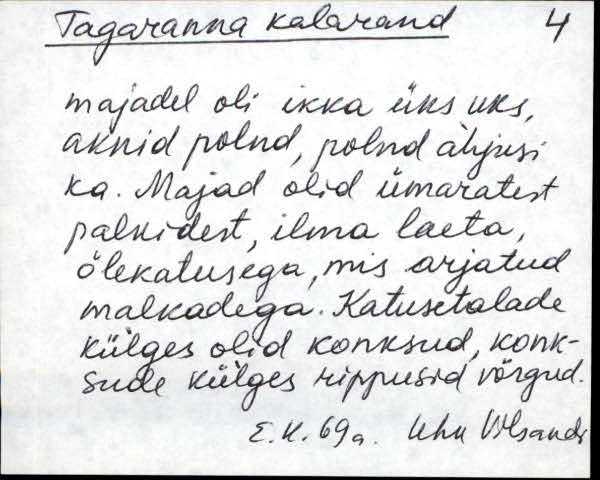 Tagaranna kalarand 4
majadel oli ikka üks uks,
aknid polnd, polnd ahjusi
ka. Majad olid ümaratest
palkidest, ilma laeta,
õlekatusega, mis arjatud
malkadega. Katusetalade
külges olid konksud, konk-
sude külges rippusid võrgud.
E.K. 69a.